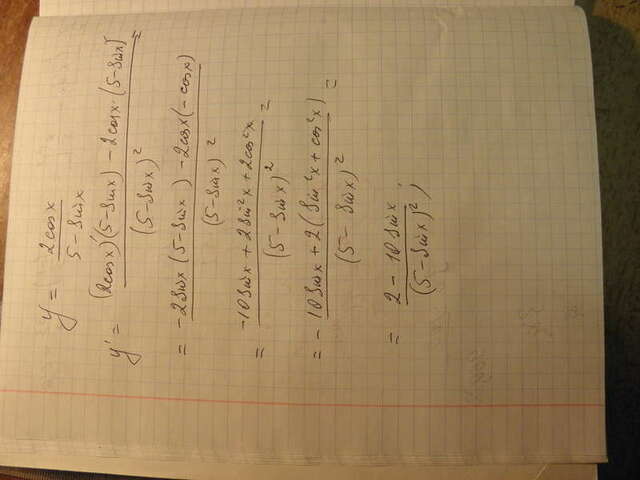 y = 2cosx / 5 - Sinx
y' = (2cosx)'(5-Sinx) - 2cosx·(5-Sinx)' / (5-Sinx)² =
= -2Sinx(5-Sinx) - 2cosx(-cosx) / (5-Sinx)²
= -10Sinx + 2Sin²x + 2cos²x / (5-Sinx)² =
= -10Sinx + 2(Sin²x + cos²x) / (5-Sinx)² =
= 2 - 10Sinx / (5-Sinx)²;